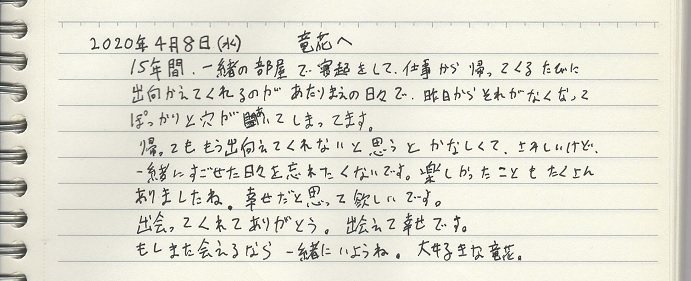 2020年4月8日(水) 竜花へ
15年間、一緒の部屋で寝起をして、仕事から帰ってくるたびに
出向かえてくれるのがあたりまえの日々で、昨日からそれがなくなって
ぽっかりと穴が開いてしまってます。
帰ってももう出向えてくれないと思うとかなしくて、さみしいけど、
一緒にすごせた日々を忘れたくないです。楽しかったこともたくさん
ありましたね。幸せだと思って欲しいです。
出会ってくれてありがとう。出会えて幸せです。
もしまた会えるなら一緒にいようね。大好きな竜花。